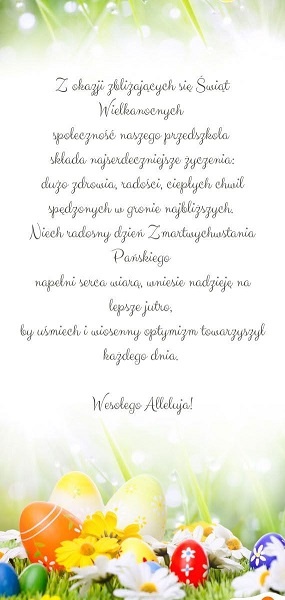 Z okazji zbliżających się Świąt
Wielkanocnych
społeczność naszego przedszkola
składa najserdeczniejsze życzenia:
dużo zdrowia, radości, ciepłych chwil
spędzonych w gronie najbliższych.
Niech radosny dzień Zmartwychwstania
Pańskiego
napełni serca wiarą, wniesie nadzieję na
lepsze jutro,
by uśmiech i wiosenny optymizm towarzyszył
każdego dnia.
Wesołego Alleluja!